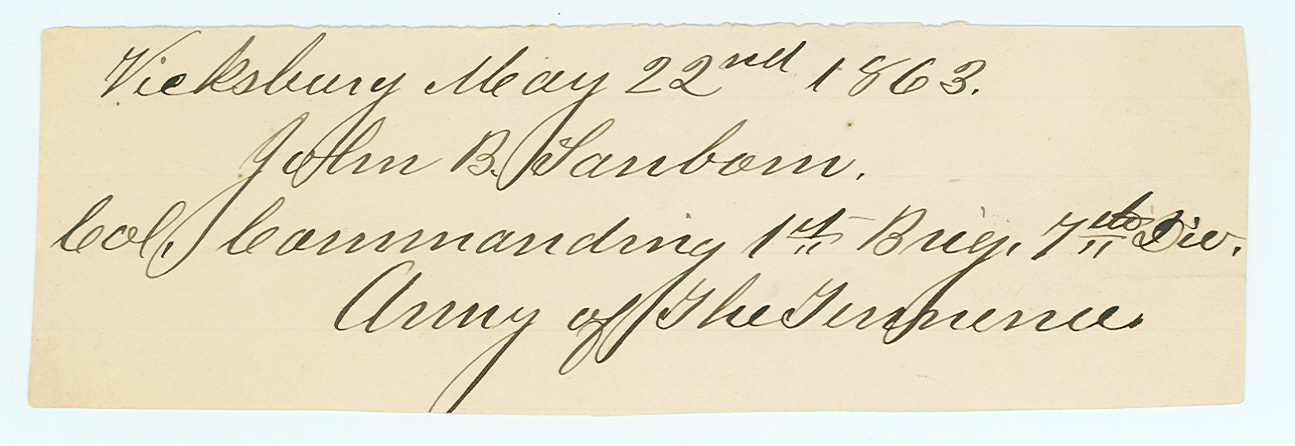 Vicksburg May 22nd 1863.
John B. Sanborn.
Col. Commanding 1st Brig. 7th Div.
Army of The Tennessee.